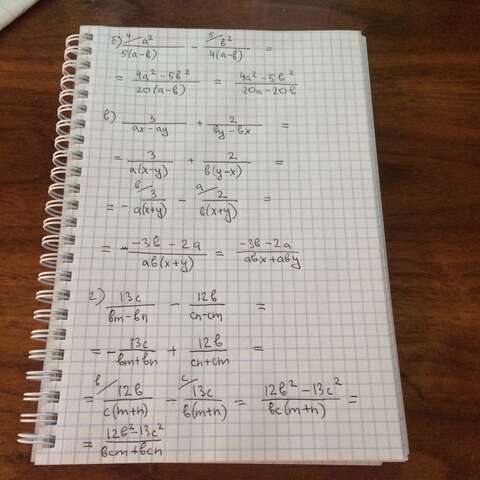 б) ⁴⁄a²/5(a-b) - ⁵⁄b²/4(a-b) =
= 4a²-5b²/20(a-b) = 4a²-5b²/20a-20b
в) 3/ax-ay + 2/by-bx =
= 3/a(x-y) + 2/b(y-x) =
= - ᵇ⁄3/a(x+y) - ᵃ⁄2/b(x+y) =
= -3b-2a/ab(x+y) = -3b-2a/abx+aby
г) 13c/bm-bn - 12b/cn-cm =
= - 13c/bm+bn + 12b/cn+cm =
= ᵇ⁄12b/c(m+n) - ᶜ⁄13c/b(m+n) = 12b²-13c²/bc(m+n) =
= 12b²-13c²/bcm+bcn